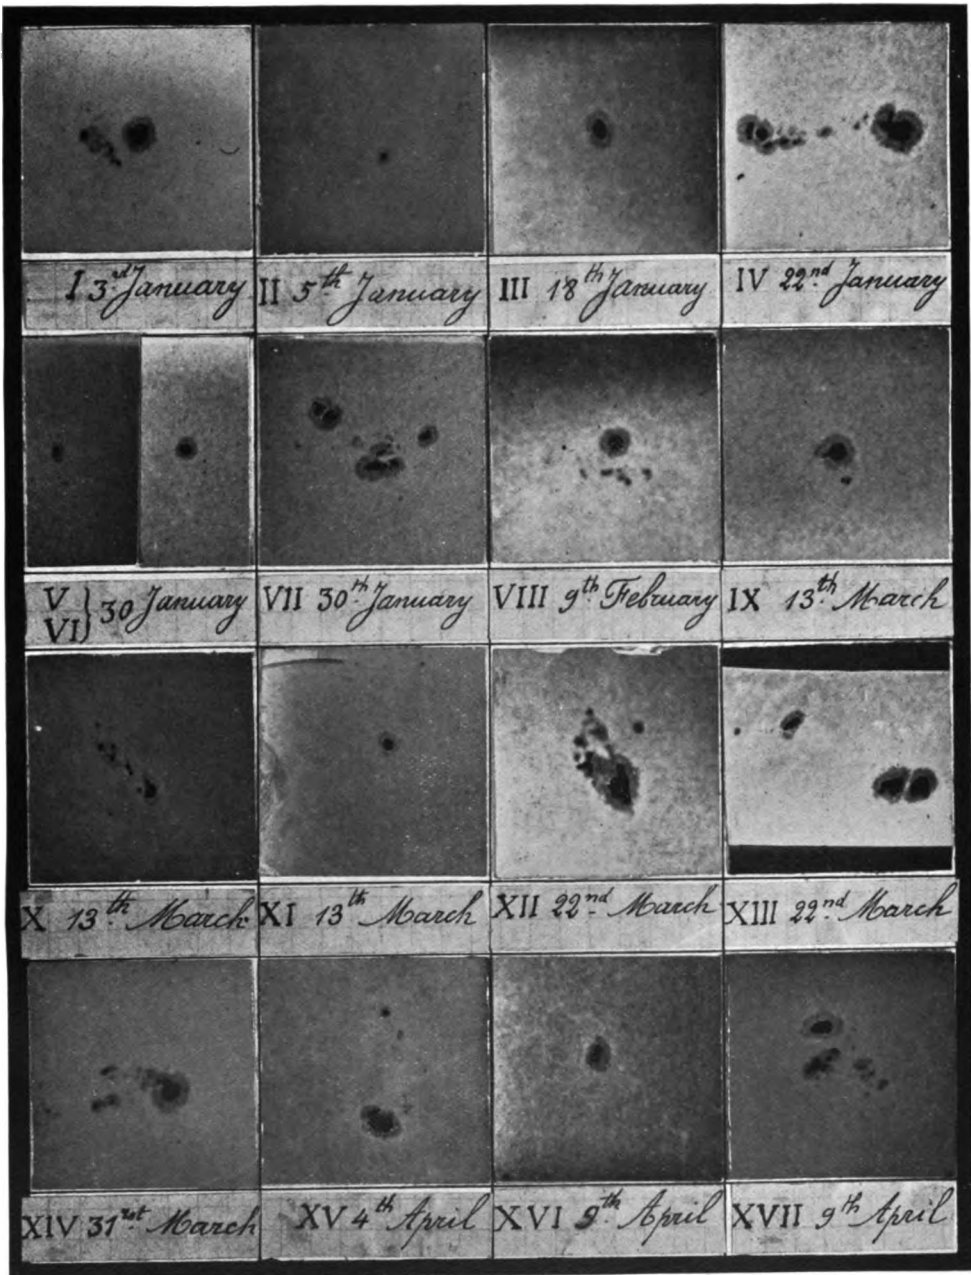 I 3rd January
II 5th January
III 18th January
IV 22nd January
V
VI } 30 January
VII 30th January
VIII 9th February
IX 13th March
X 13th March
XI 13th March
XII 22nd March
XIII 22nd March
XIV 31rst March
XV 4th April
XVI 9th April
XVII 9th April